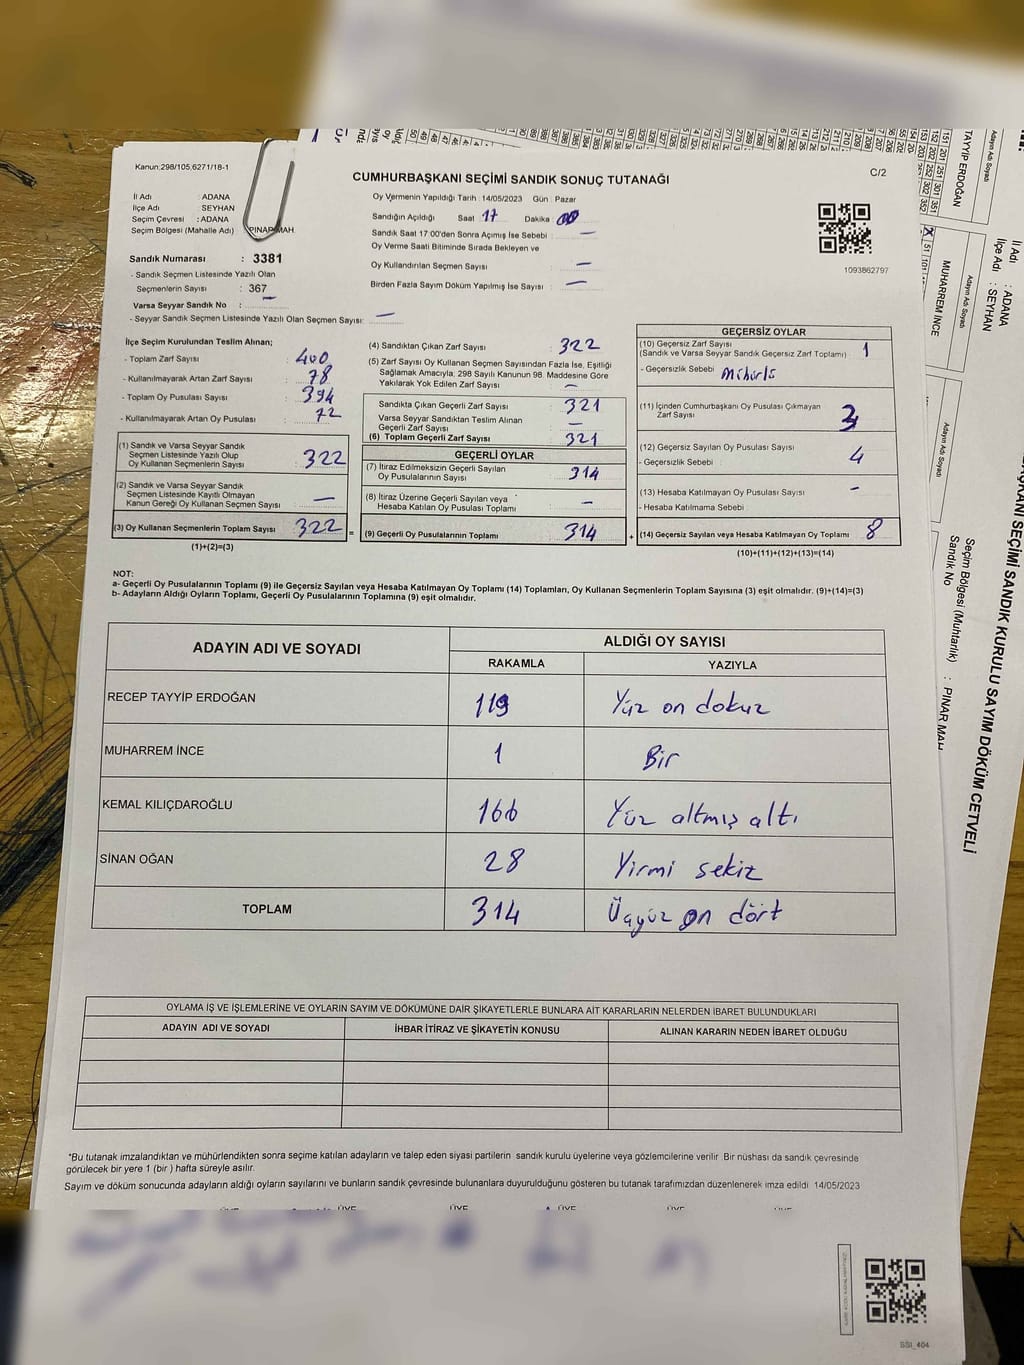 Kanun:298/105,6271/18-1
CUMHURBAŞKANI SEÇİMİ SANDIK SONUÇ TUTANAĞI
C/2
İl Adı : ADANA
İlçe Adı : SEYHAN
Seçim Çevresi : ADANA
Seçim Bölgesi (Mahalle Adı) : PINAR MAH.
Sandık Numarası : 3381
- Sandık Seçmen Listesinde Yazılı Olan
Seçmenlerin Sayısı : 367
Varsa Seyyar Sandık No : –
- Seyyar Sandık Seçmen Listesinde Yazılı Olan Seçmen Sayısı: –
Oy Vermenin Yapıldığı Tarih : 14/05/2023 Gün : Pazar
Sandığın Açıldığı Saat 17 Dakika : 00
Sandık Saat 17:00'den Sonra Açımış İse Sebebi : –
Oy Verme Saati Bitiminde Sırada Bekleyen ve
Oy Kullandırılan Seçmen Sayısı : –
Birden Fazla Sayım Döküm Yapılmış İse Sayısı : –
1093862797
İlçe Seçim Kurulundan Teslim Alınan;
- Toplam Zarf Sayısı : 400
- Kullanılmayarak Artan Zarf Sayısı : 78
- Toplam Oy Pusulası Sayısı : 394
- Kullanılmayarak Artan Oy Pusulası : 72
(1) Sandık ve Varsa Seyyar Sandık
Seçmen Listesinde Yazılı Olup
Oy Kullanan Seçmenlerin Sayısı : 322
(2) Sandık ve Varsa Seyyar Sandık
Seçmen Listesinde Kayıtlı Olmayan
Kanun Gereği Oy Kullanan Seçmen Sayısı : –
(3) Oy Kullanan Seçmenlerin Toplam Sayısı : 322
(1)+(2)=(3)
(4) Sandıktan Çıkan Zarf Sayısı : 322
(5) Zarf Sayısı Oy Kullanan Seçmen Sayısından Fazla İse, Eşitliği
Sağlamak Amacıyla, 298 Sayılı Kanunun 98. Maddesine Göre
Yakılarak Yok Edilen Zarf Sayısı : –
Sandıkta Çıkan Geçerli Zarf Sayısı : 321
Varsa Seyyar Sandıktan Teslim Alınan
Geçerli Zarf Sayısı : –
(6) Toplam Geçerli Zarf Sayısı : 321
GEÇERLİ OYLAR
(7) İtiraz Edilmeksizin Geçerli Sayılan
Oy Pusulalarının Sayısı : 314
(8) İtiraz Üzerine Geçerli Sayılan veya
Hesaba Katılan Oy Pusulası Toplamı : –
= (9) Geçerli Oy Pusulalarının Toplamı : 314
GEÇERSİZ OYLAR
(10) Geçersiz Zarf Sayısı
(Sandık ve Varsa Seyyar Sandık Geçersiz Zarf Toplamı) : 1
- Geçersizlik Sebebi :
(11) İçinden Cumhurbaşkanı Oy Pusulası Çıkmayan
Zarf Sayısı : 3
(12) Geçersiz Sayılan Oy Pusulası Sayısı : 4
- Geçersizlik Sebebi :
(13) Hesaba Katılmayan Oy Pusulası Sayısı : –
- Hesaba Katılmama Sebebi :
+ (14) Geçersiz Sayılan veya Hesaba Katılmayan Oy Toplamı : 8
(10)+(11)+(12)+(13)=(14)
NOT:
a- Geçerli Oy Pusulalarının Toplamı (9) ile Geçersiz Sayılan veya Hesaba Katılmayan Oy Toplamı (14) Toplamları, Oy Kullanan Seçmenlerin Toplam Sayısına (3) eşit olmalıdır. (9)+(14)=(3)
b- Adayların Aldığı Oyların Toplamı, Geçerli Oy Pusulalarının Toplamına (9) eşit olmalıdır.
ADAYIN ADI VE SOYADI
ALDIĞI OY SAYISI
RAKAMLA YAZIYLA
RECEP TAYYİP ERDOĞAN 119 Yüz on dokuz
MUHARREM İNCE 1 Bir
KEMAL KILIÇDAROĞLU 166 Yüz altmış altı
SİNAN OĞAN 28 Yirmi sekiz
TOPLAM 314 Üçyüz on dört
OYLAMA İŞ VE İŞLEMLERİNE VE OYLARIN SAYIM VE DÖKÜMÜNE DAİR ŞİKAYETLERLE BUNLARA AİT KARARLARIN NELERDEN İBARET BULUNDUKLARI
ADAYIN ADI VE SOYADI İHBAR İTİRAZ VE ŞİKAYETİN KONUSU ALINAN KARARIN NEDEN İBARET OLDUĞU
*Bu tutanak imzalandıktan ve mühürlendikten sonra seçime katılan adayların ve talep eden siyasi partilerin sandık kurulu üyelerine veya gözlemcilerine verilir. Bir nüshası da sandık çevresinde
görülecek bir yere 1 (bir ) hafta süreyle asılır.
Sayım ve döküm sonucunda adayların aldığı oyların sayılarını ve bunların sandık çevresinde bulunanlara duyurulduğunu gösteren bu tutanak tarafımızdan düzenlenerek imza edildi 14/05/2023
ÜYE ÜYE ÜYE ÜYE ÜYE
SSI_464
TAYYİP ERDOĞAN
Adayın Adı Soyadı
MUHARREM İNCE
Adayın Adı Soyadı
Adayın Adı Soyadı
İl Adı : ADANA
İlçe Adı : SEYHAN
Seçim Bölgesi (Muhtarlık) : PINAR MAH.
Sandık No
KANI SEÇİMİ SANDIK KURULU SAYIM DÖKÜM CETVELİ